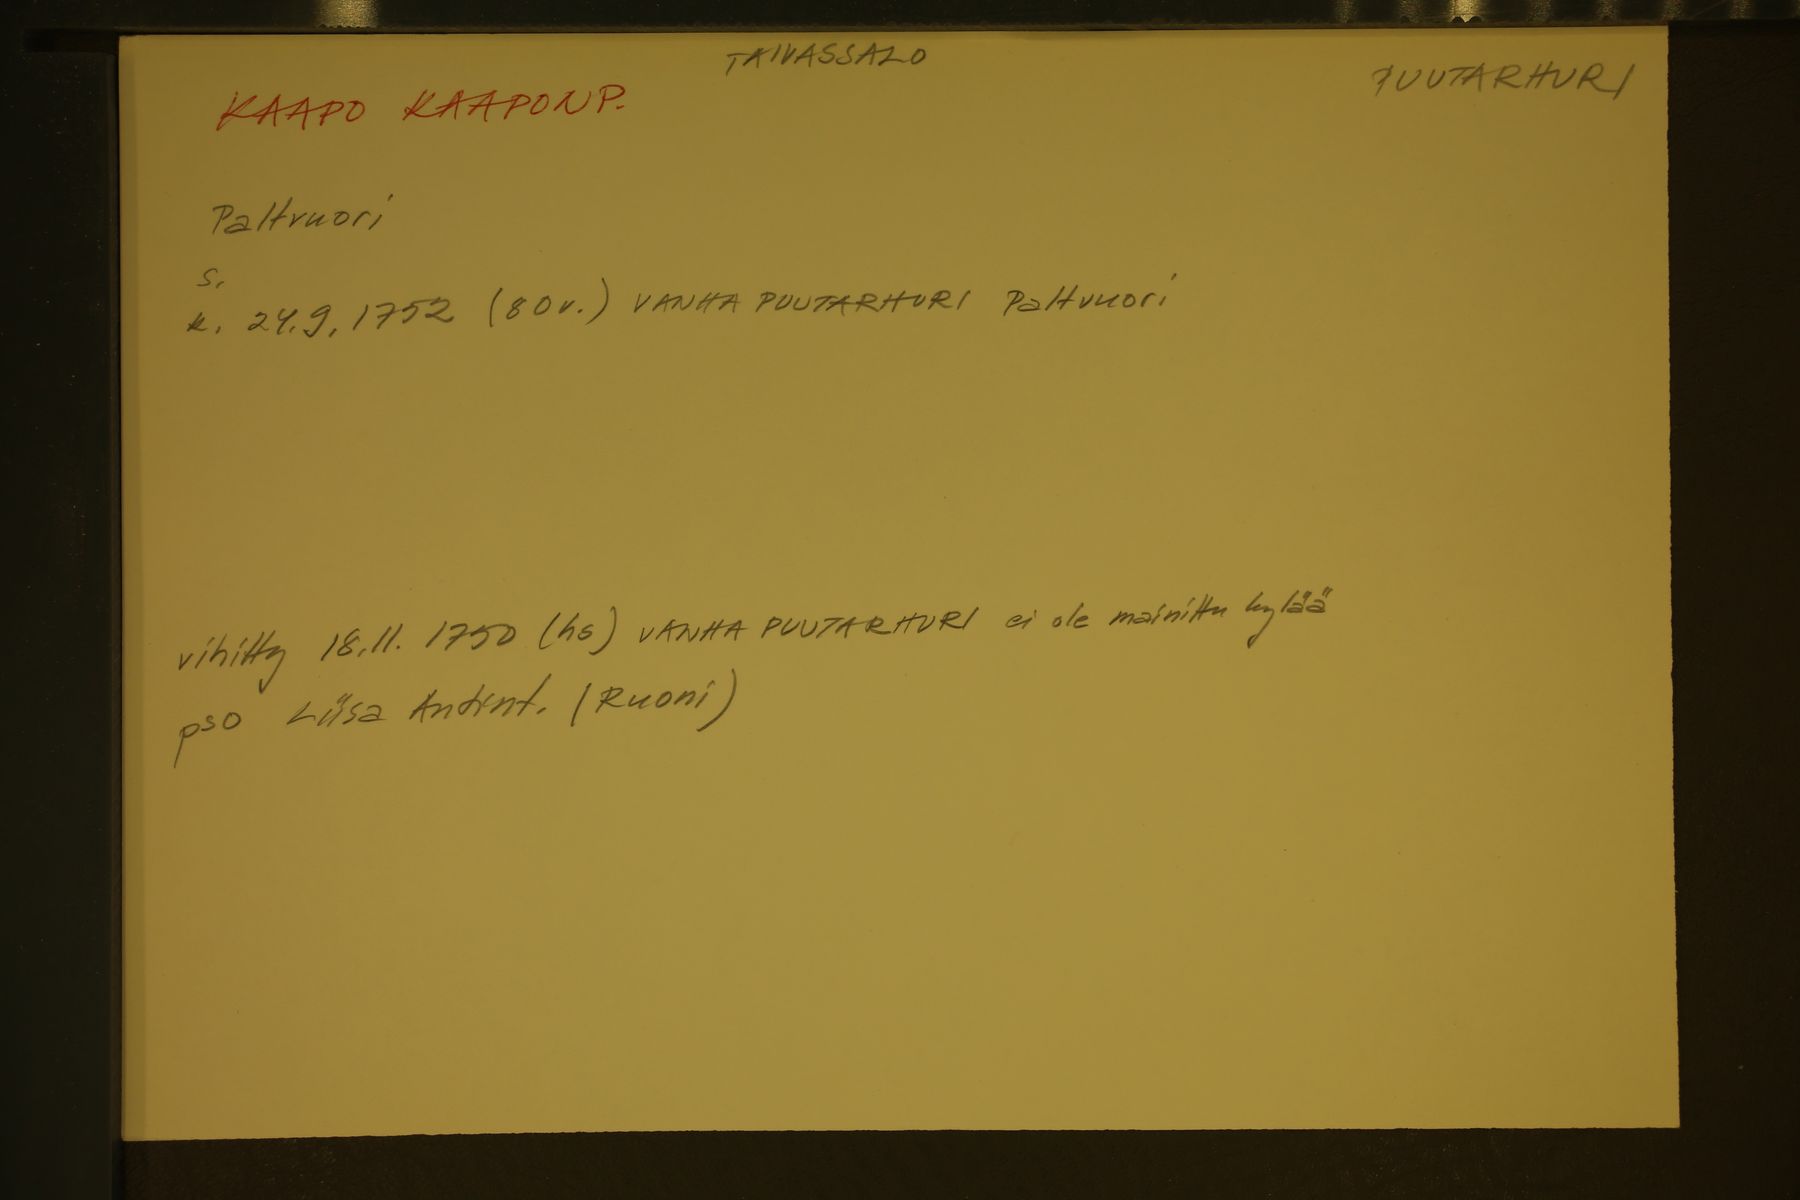 TAIVASSALO
PUUTARHURI
KAAPO KAAPONP.
Paltvuori
s.
k. 24.9.1752 (80v.) VANHA PUUTARHURI Paltvuori
vihitty 18.11.1750 (hs) VANHA PUUTARHURI ei ole mainittu kylää
pso Liisa Antint. (Ruoni)